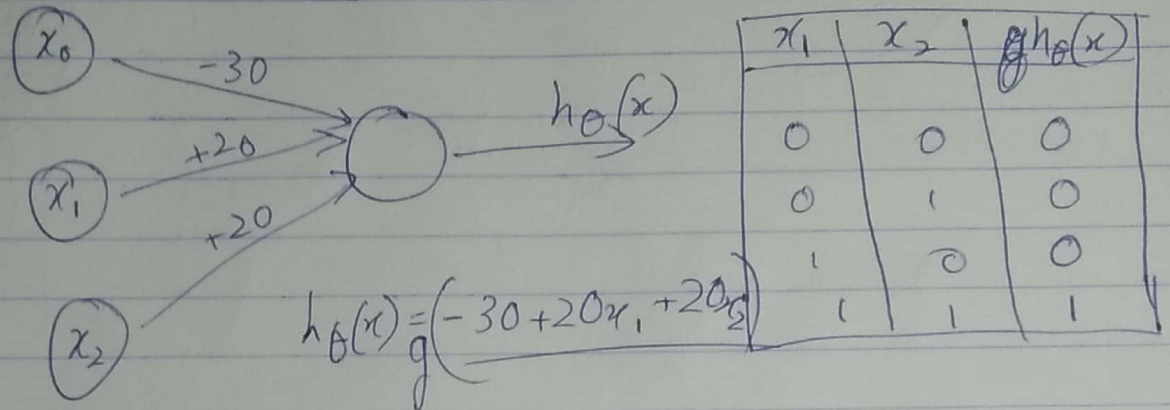 x₀
-30
x₁
+20
x₂
+20
hθ(x)
hθ(x) = g(-30 + 20x₁ + 20x₂)
x₁ x₂ hθ(x)
0 0 0
0 1 0
1 0 0
1 1 1